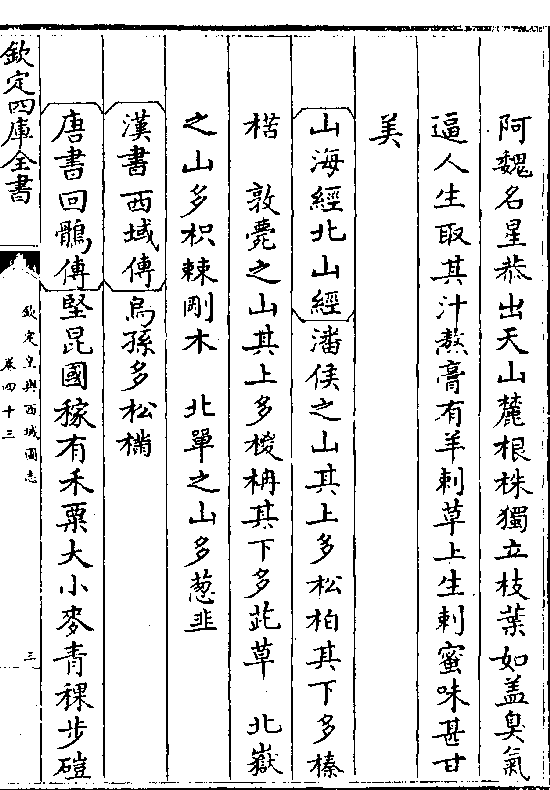 阿魏名星㳟出天山麓根株獨立枝葉如盖臭氣
逼人生取其汁熬膏有羊刺草上生刺蜜味甚甘
美
山海經北山經潘侯之山其上多松柏其下多榛
楛　敦薨之山其上多椶枏其下多茈草　北嶽
之山多枳棘剛木　北單之山多葱韭
漢書西域傳烏孫多松樠
唐書回鶻傳堅昆國稼有禾粟大小麥青稞步磑
欽定四庫全書
欽定皇輿西域圖志
卷四十三
三